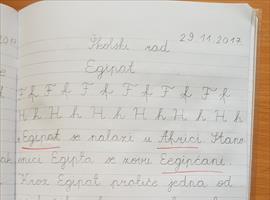 29.11.2017.
Školski rad
Egipat
F f F f F f F f F f F f
H h H h H h H h H h H h
Egipat se nalazi u Africi. Stano
vnici Egipta se zovu Eegipćani.
Kroz Egipat protiče jedna od